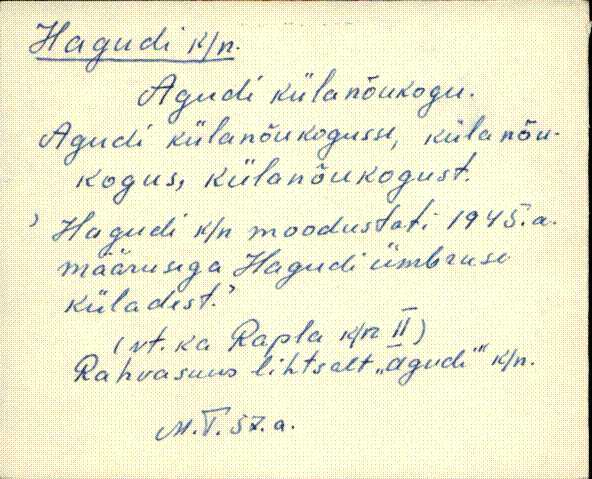 Hagudi k/n.
Agudi külanõukogu.
Agudi külanõukogusse, külanõu-
kogus, külanõukogust.
' Hagudi k/n moodustati 1945.a.
määrusega Hagudi ümbruse
küladest.'
(vt. ka Rapla k/n II)
Rahvasuus lihtsalt „agudi" k/n.
M.T. 57.a.